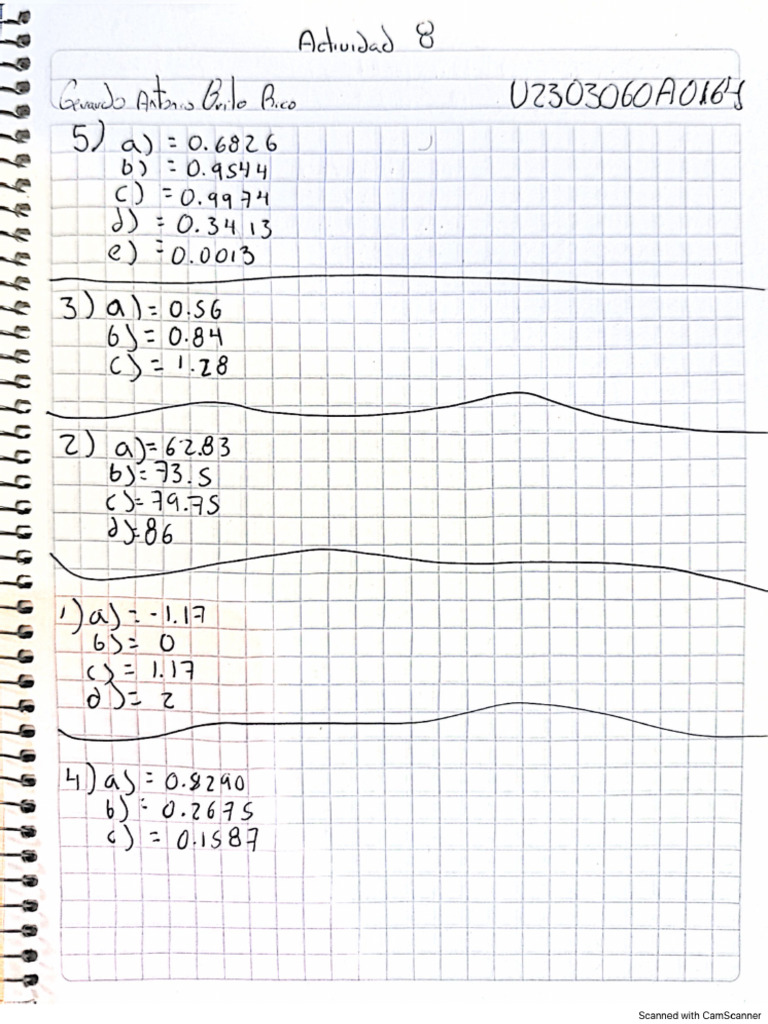 Actividad 8
Gerardo Antonio Brito Rico U2303060A0164
5) a) = 0.6826
b) = 0.9544
c) = 0.9974
d) = 0.3413
e) = 0.0013
3) a) = 0.56
b) = 0.84
c) = 1.28
2) a) = 62.83
b) = 73.5
c) = 79.75
d) = 86
1) a) = -1.17
b) = 0
c) = 1.17
d) = 2
4) a) = 0.8290
b) = 0.2675
c) = 0.1587
Scanned with CamScanner